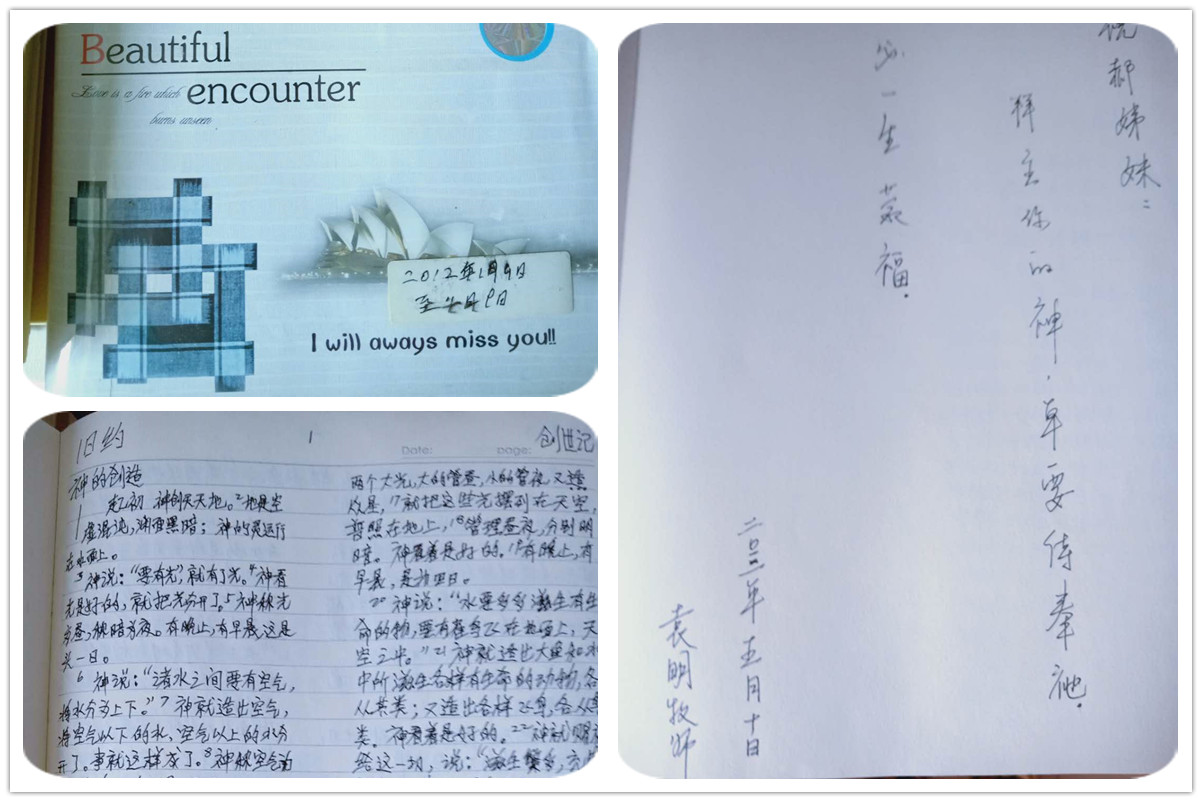 Beautiful
Love is a fire which
encounter
burns unseen
2012年1月9日
至七月9日
I will aways miss you!!
旧约
1
Date:
page:
创世记
神的创造
1 起初 神创天地。2地是空
虚混沌,渊面黑暗;神的灵运行
在水面上。
3神说:“要有光”,就有了光。4神看
光是好的,就把光分开了。5神称光
为昼,称暗为夜。有晚上,有早晨,这是
头一日。
6 神说:“诸水之间要有空气,
将水分为上下。”7 神就造出空气,
将空气以下的水、空气以上的水分
开了。事就这样成了。8神称空气
两个大光,大的管昼,小的管夜,又造
众星,17就把这些光摆列在天空,
普照在地上,18管理昼夜,分别明
暗。神看着是好的。19有晚上,有
早晨,是为四日。
20 神说:“水要多多滋生有生
命的物,要有雀鸟飞在地面上,天
空之中。”21 神就造出大鱼和水
中所滋生各样有生命的动物,各
从其类;又造出各样飞鸟,各从其
类。神看着是好的。22 神就赐
给这一切,说:“滋生繁多,充
祝郝姊妹:
拜主你的神.单要侍奉祂.
必一生蒙福.
二〇二二年五月十日
袁明牧师